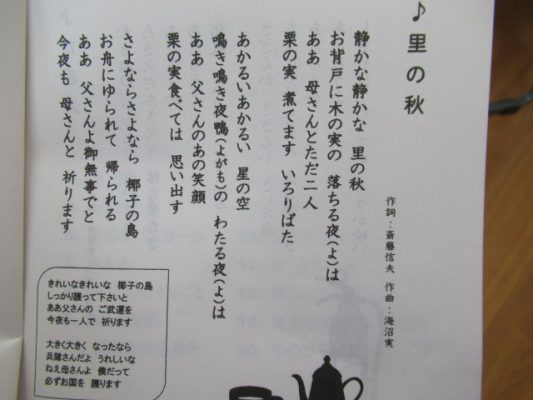 ♪里の秋
作詞:斎藤信夫 作曲:海沼実
静かな静かな 里の秋
お背戸に木の実の 落ちる夜(よ)は
ああ 母さんとただ二人
栗の実 煮てます いろりばた
あかるいあかるい 星の空
鳴き鳴き夜鴨(よがも)の わたる夜(よ)は
ああ 父さんのあの笑顔
栗の実食べては 思い出す
さよならさよなら 椰子の島
お舟にゆられて 帰られる
ああ 父さんよ御無事でと
今夜も 母さんと 祈ります
きれいなきれいな 椰子の島
しっかり護って下さいと
ああ父さんの ご武運を
今夜も一人で 祈ります
大きく大きく なったなら
兵隊さんだよ うれしいな
ねえ母さんよ 僕だって
必ずお国を 護ります